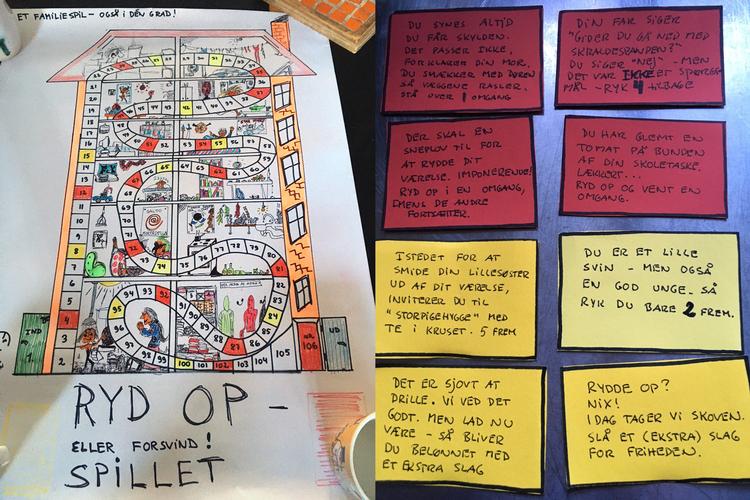 ET FAMILIESPIL - OGSÅ I DÉN GRAD!
IND
NR.
106
UD
RYD OP -
ELLER FORSVIND!
SPILLET
DU SYNES ALTID
DU FÅR SKYLDEN.
DET PASSER IKKE,
FORKLARER DIN MOR.
DU SMÆKKER MED DØREN
SÅ VÆGGENE RASLER.
STÅ OVER 1 OMGANG
DIN FAR SIGER
"GIDER DU GÅ NED MED
SKRALDESPANDEN?"
DU SIGER "NEJ" - MEN
DET VAR IKKE ET SPØRGS-
MÅL - RYK 4 TILBAGE
DER SKAL EN
SNEPLOV TIL FOR
AT RYDDE DIT
VÆRELSE. IMPONERENDE!
RYD OP I EN OMGANG,
IMENS DE ANDRE
FORTSÆTTER.
DU HAR GLEMT EN
TOMAT PÅ BUNDEN
AF DIN SKOLETASKE.
LÆKKERT...
RYD OP OG VENT EN
OMGANG.
ISTEDET FOR AT
SMIDE DIN LILLESØSTER
UD AF DIT VÆRELSE,
INVITERER DU TIL
"STORPIGEHYGGE" MED
TE I KRUSET. 5 FREM
DU ER ET LILLE
SVIN - MEN OGSÅ
EN GOD UNGE. SÅ
RYK DU BARE 2 FREM.
DET ER SJOVT AT
DRILLE. VI VED DET
GODT. MEN LAD NU
VÆRE - SÅ BLIVER
DU BELØNNET MED
ET EKSTRA SLAG
RYDDE OP?
NIX!
I DAG TAGER VI SKOVEN.
SLÅ ET (EKSTRA) SLAG
FOR FRIHEDEN.